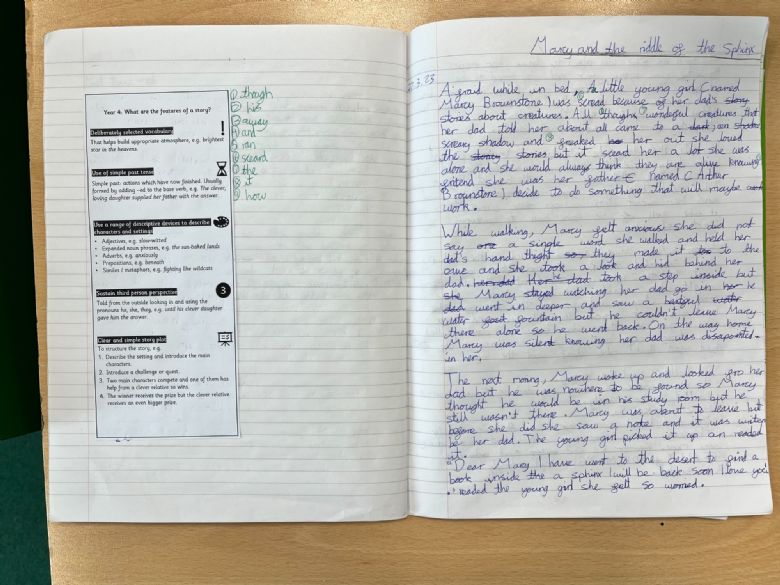 Year 4: What are the features of a story?
Deliberately selected vocabulary
That helps build appropriate atmosphere, e.g. brightest
star in the heavens.
Use of simple past tense
Simple past: actions which have now finished. Usually
formed by adding -ed to the base verb, e.g. The clever,
loving daughter supplied her father with the answer.
Use a range of descriptive devices to describe
characters and settings
• Adjectives, e.g. slow-witted
• Expanded noun phrases, e.g. the sun-baked lands
• Adverbs, e.g. anxiously
• Prepositions, e.g. beneath
• Similes / metaphors, e.g. fighting like wildcats
Sustain third person perspective
3
Told from the outside looking in and using the
pronouns he, she, they, e.g. until his clever daughter
gave him the answer.
Clear and simple story plot
To structure the story, e.g.
1. Describe the setting and introduce the main
characters.
2. Introduce a challenge or quest.
3. Two main characters compete and one of them has
help from a clever relative to wins.
4. The winner receives the prize but the clever relative
receives an even bigger prize.
① though
② his
③ away
④ and
⑤ ran
⑥ scared
⑦ the
⑧ it
⑨ how
Marcy and the riddle of the Sphinx
.3.23
while in bed, A little young girl (named
Marcy Brownstone) was scread because of her dad's story
stories about creatures. All thoughs wonderful creatures that
her dad told her about all came to a dark
screary shadow and freaked her out she loved
the stories but it sceard her a lot she was
alone and she would always think they are alive knowing
entend she was her father named (Arthur
Brownstone) decide to do something that will maybe
work.
While walking, Marcy felt anxious she did not
say a single word she walked and held her
dad's hand thight so they made it to the
cave and she took a look and hid behind her
dad. her dad took a step inside but
she Marcy stayed watching her dad go in her
dad went in deeper and saw a
water fountain but he couldn't leave Marcy
there alone so he went back. On the way home
Marcy was silent knowing her dad was disapointed
in her.
The next morning, Marcy woke up and looked for her
dad but he was nowhere to be found so Marcy
thought he would be in his study room but he
still wasn't there. Marcy was about to leave but
before she did she saw a note and it was writen
be her dad. The young girl picked it up an readed
it.
"Dear Marcy I have went to the desert to find a
book inside the a sphinx I will be back soon I love you
." readed the young girl she felt so worried.